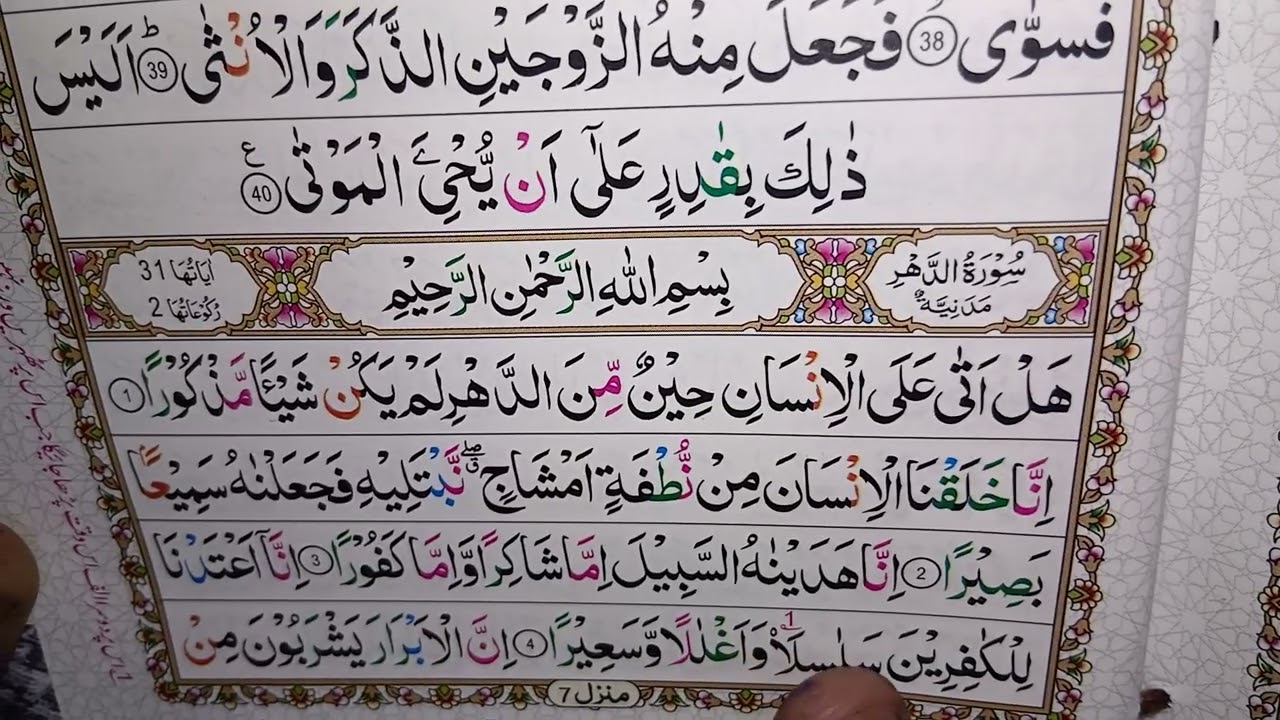 فَسَوّٰى ﴿38﴾ فَجَعَلَ مِنْهُ الزَّوْجَيْنِ الذَّكَرَ وَالْاُنْثٰى ﴿39﴾ؕ اَلَيْسَ
ذٰلِكَ بِقٰدِرٍ عَلٰٓى اَنْ يُّحْۦِىَ الْمَوْتٰى ﴿40﴾ ع
سُوْرَةُ الدَّهْرِ
مَدَنِيَّةٌ
بِسْمِ اللهِ الرَّحْمٰنِ الرَّحِيْمِ
اٰيَاتُهَا 31
رُكُوْعَاتُهَا 2
هَلْ اَتٰى عَلَى الْاِنْسَانِ حِيْنٌ مِّنَ الدَّهْرِ لَمْ يَكُنْ شَيْـًٔا مَّذْكُوْرًا ﴿1﴾
اِنَّا خَلَقْنَا الْاِنْسَانَ مِنْ نُّطْفَةٍ اَمْشَاجٍ ۖق نَّبْتَلِيْهِ فَجَعَلْنٰهُ سَمِيْعًا
بَصِيْرًا ﴿2﴾ اِنَّا هَدَيْنٰهُ السَّبِيْلَ اِمَّا شَاكِرًا وَّاِمَّا كَفُوْرًا ﴿3﴾ اِنَّآ اَعْتَدْنَا
لِلْكٰفِرِيْنَ سَلٰسِلَا۟ وَاَغْلٰلًا وَّسَعِيْرًا ﴿4﴾ اِنَّ الْاَبْرَارَ يَشْرَبُوْنَ مِنْ
منزل 7